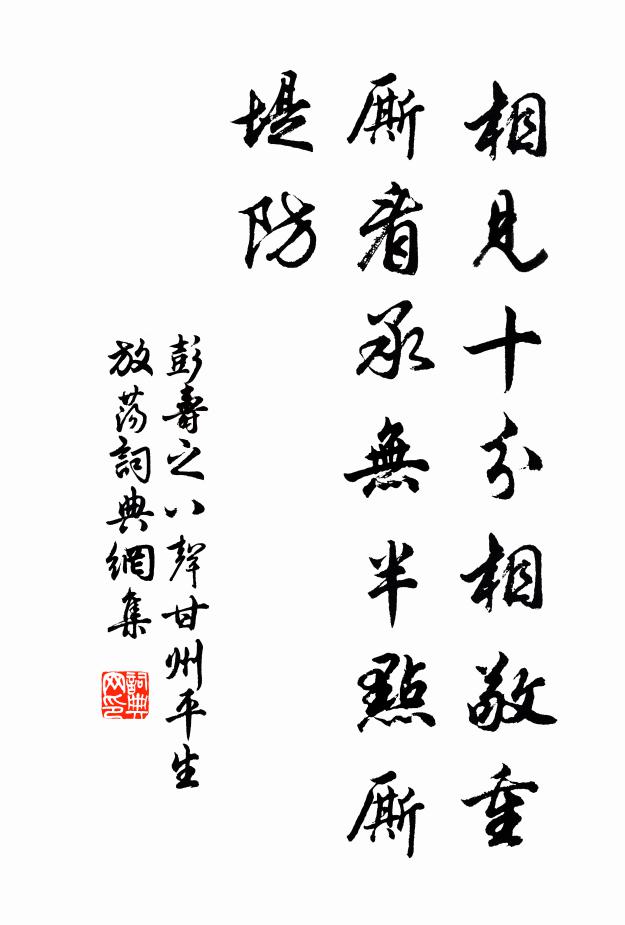 相見十分相敬重
厮看承無半點厮
堤防
彭壽之八聲甘州平生
放蕩詞典網集
詞典
网印